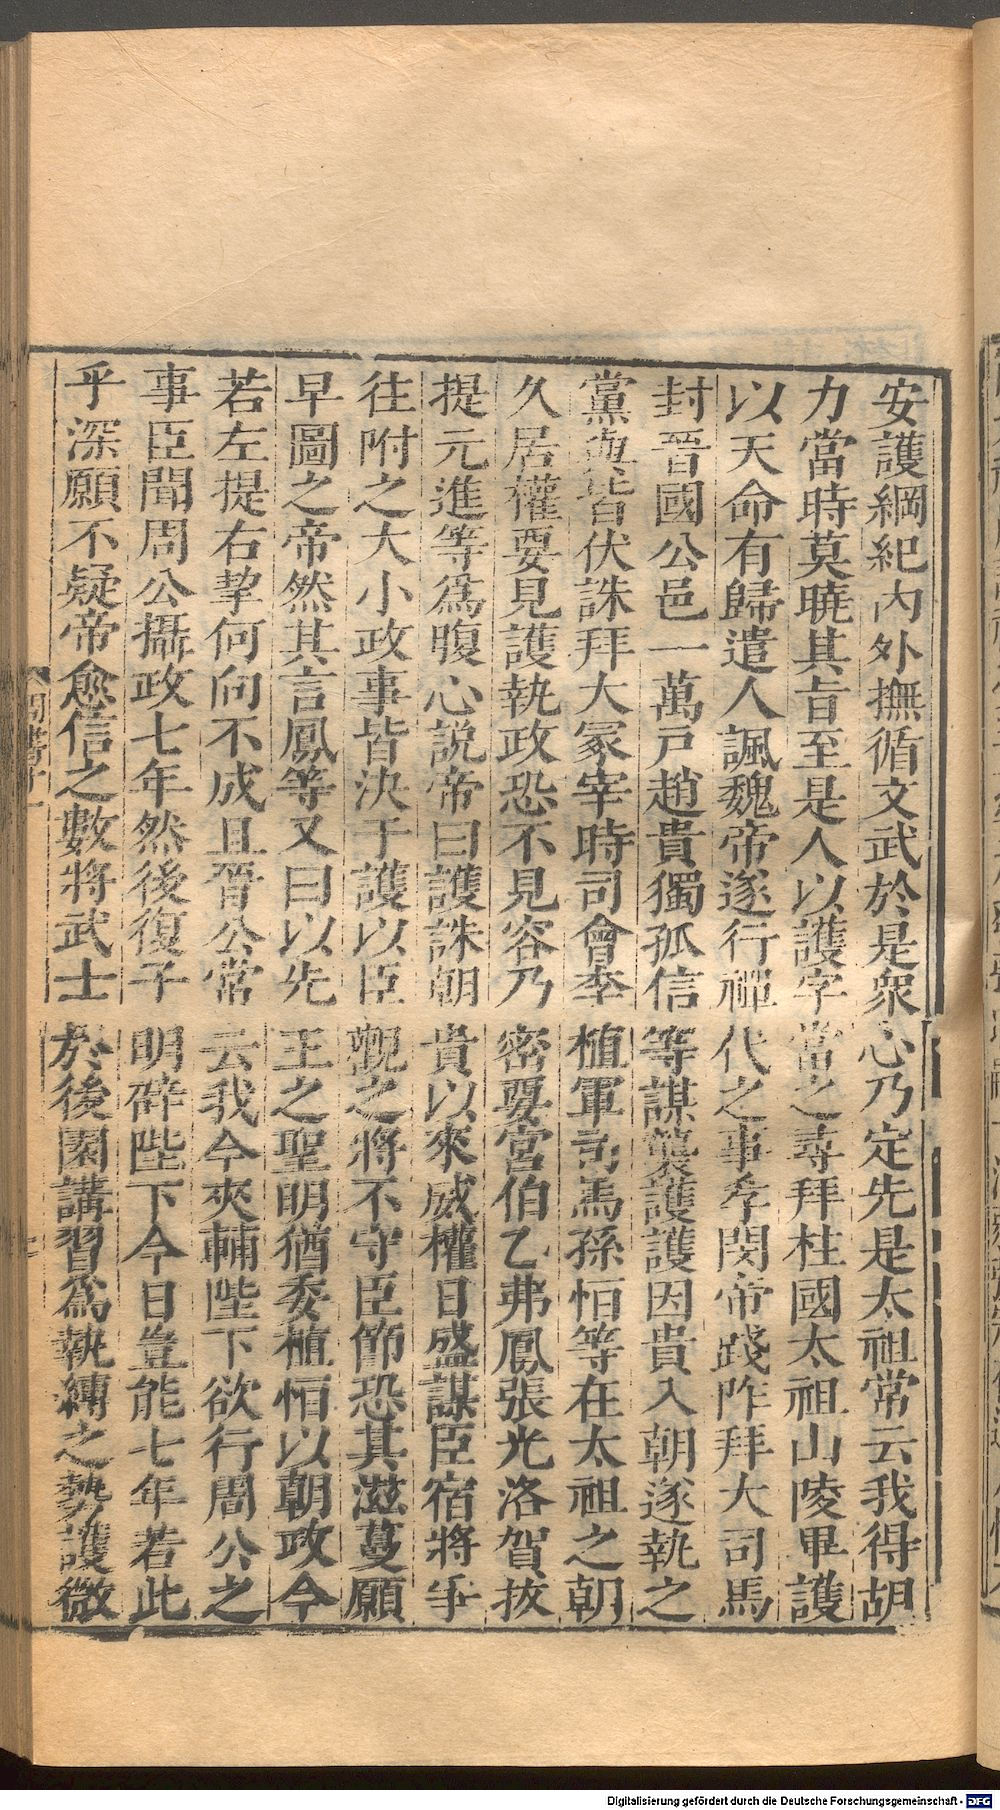 安護綱紀內外撫循文武於是衆心乃定先是太祖常云我得胡
力當時莫曉其旨至是人以護字當之尋拜柱國太祖山陵畢護
以天命有歸遣人諷魏帝遂行禪代之事孝閔帝踐阼拜大司馬
封晉國公邑一萬戸趙貴獨孤信等謀襲護護因貴入朝遂執之
黨與皆伏誅拜大冢宰時司會李植軍司馬孫恒等在太祖之朝
久居權要見護執政恐不見容乃密要宮伯乙弗鳳張光洛賀拔
提元進等爲腹心説帝曰護誅朝貴以來威權日盛謀臣宿將爭
往附之大小政事皆決于護以臣觀之將不守臣節恐其滋蔓願
早圖之帝然其言鳳等又曰以先王之聖明猶委植恒以朝政今
若左提右挈何向不成且晉公常云我今夾輔陛下欲行周公之
事臣聞周公攝政七年然後復子明辟陛下今日豈能七年若此
乎深願不疑帝愈信之數將武士於後園講習爲執縛之勢護微
Digitalisierung gefördert durch die Deutsche Forschungsgemeinschaft - DFG